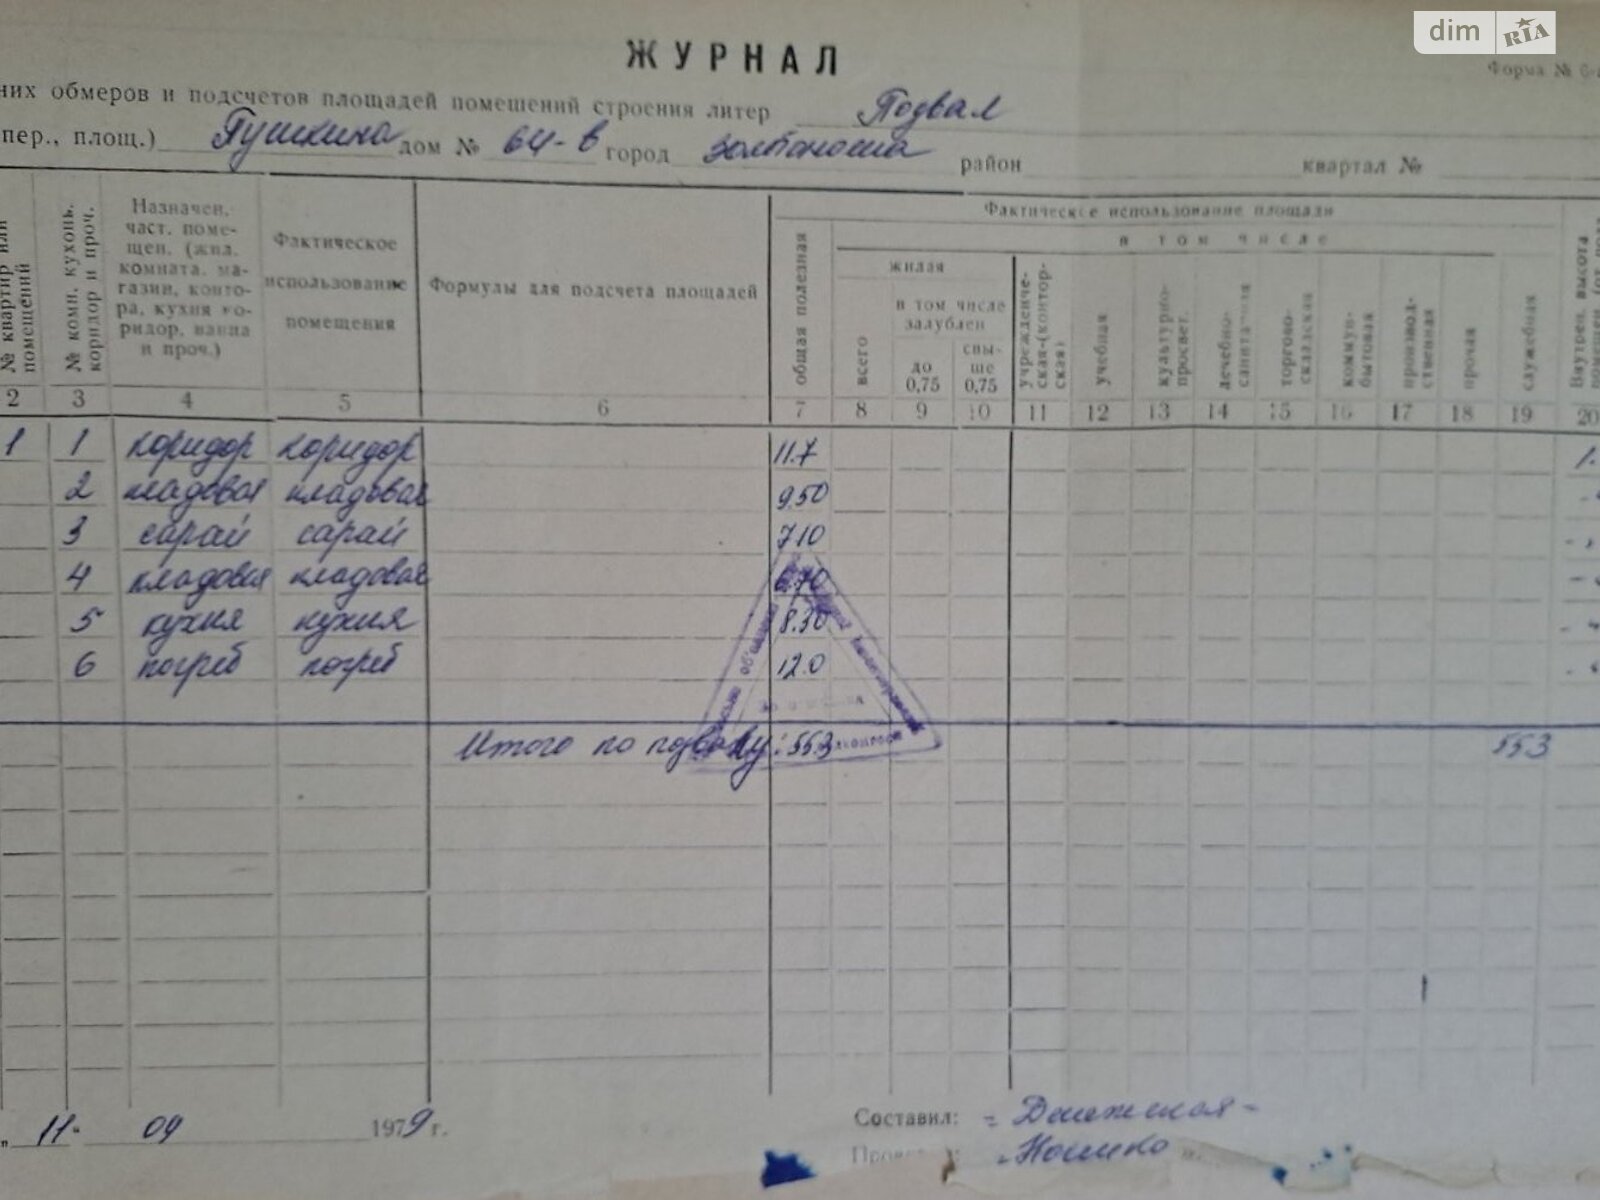 dim RIA
ЖУРНАЛ
Форма № 6-
них обмеров и подсчетов площадей помешений строения литер Подвал
пер., площ.) Пушкина дом № 64-в город Золотоноша район квартал №
№ квартир или помещений
№ комн. кухонь, корридор и проч.
Назначен. част. поме-
щен. (жил.
комната. ма-
газин, конто-
ра, кухня ко-
ридор, ванна
и проч.)
Фактическое
использование
помещения
Формулы для подсчета площадей
общая полезная
Фактическое использование площади
в том числе
жилая
всего
в том числе
заглублен
до
0,75
свы-
ше
0,75
учрежденче-
ская-(контор-
ская)
учебная
культурно-
просвет.
лечебно-
санитарная
торгово-
складская
коммун-
бытовая
производ-
ственная
прочая
служебная
Внутрен. высота
2 3 4 5 6 7 8 9 10 11 12 13 14 15 16 17 18 19 20
1 1 коридор коридор 11.7 1.
2 кладовая кладовая 9.50
3 сарай сарай 7.10
4 кладовая кладовая 6.70
5 кухня кухня 8.30
6 погреб погреб 12.0
Итого по подвалу: 55.3 55.3
„ 11 " 04 1979 г.
Составил: